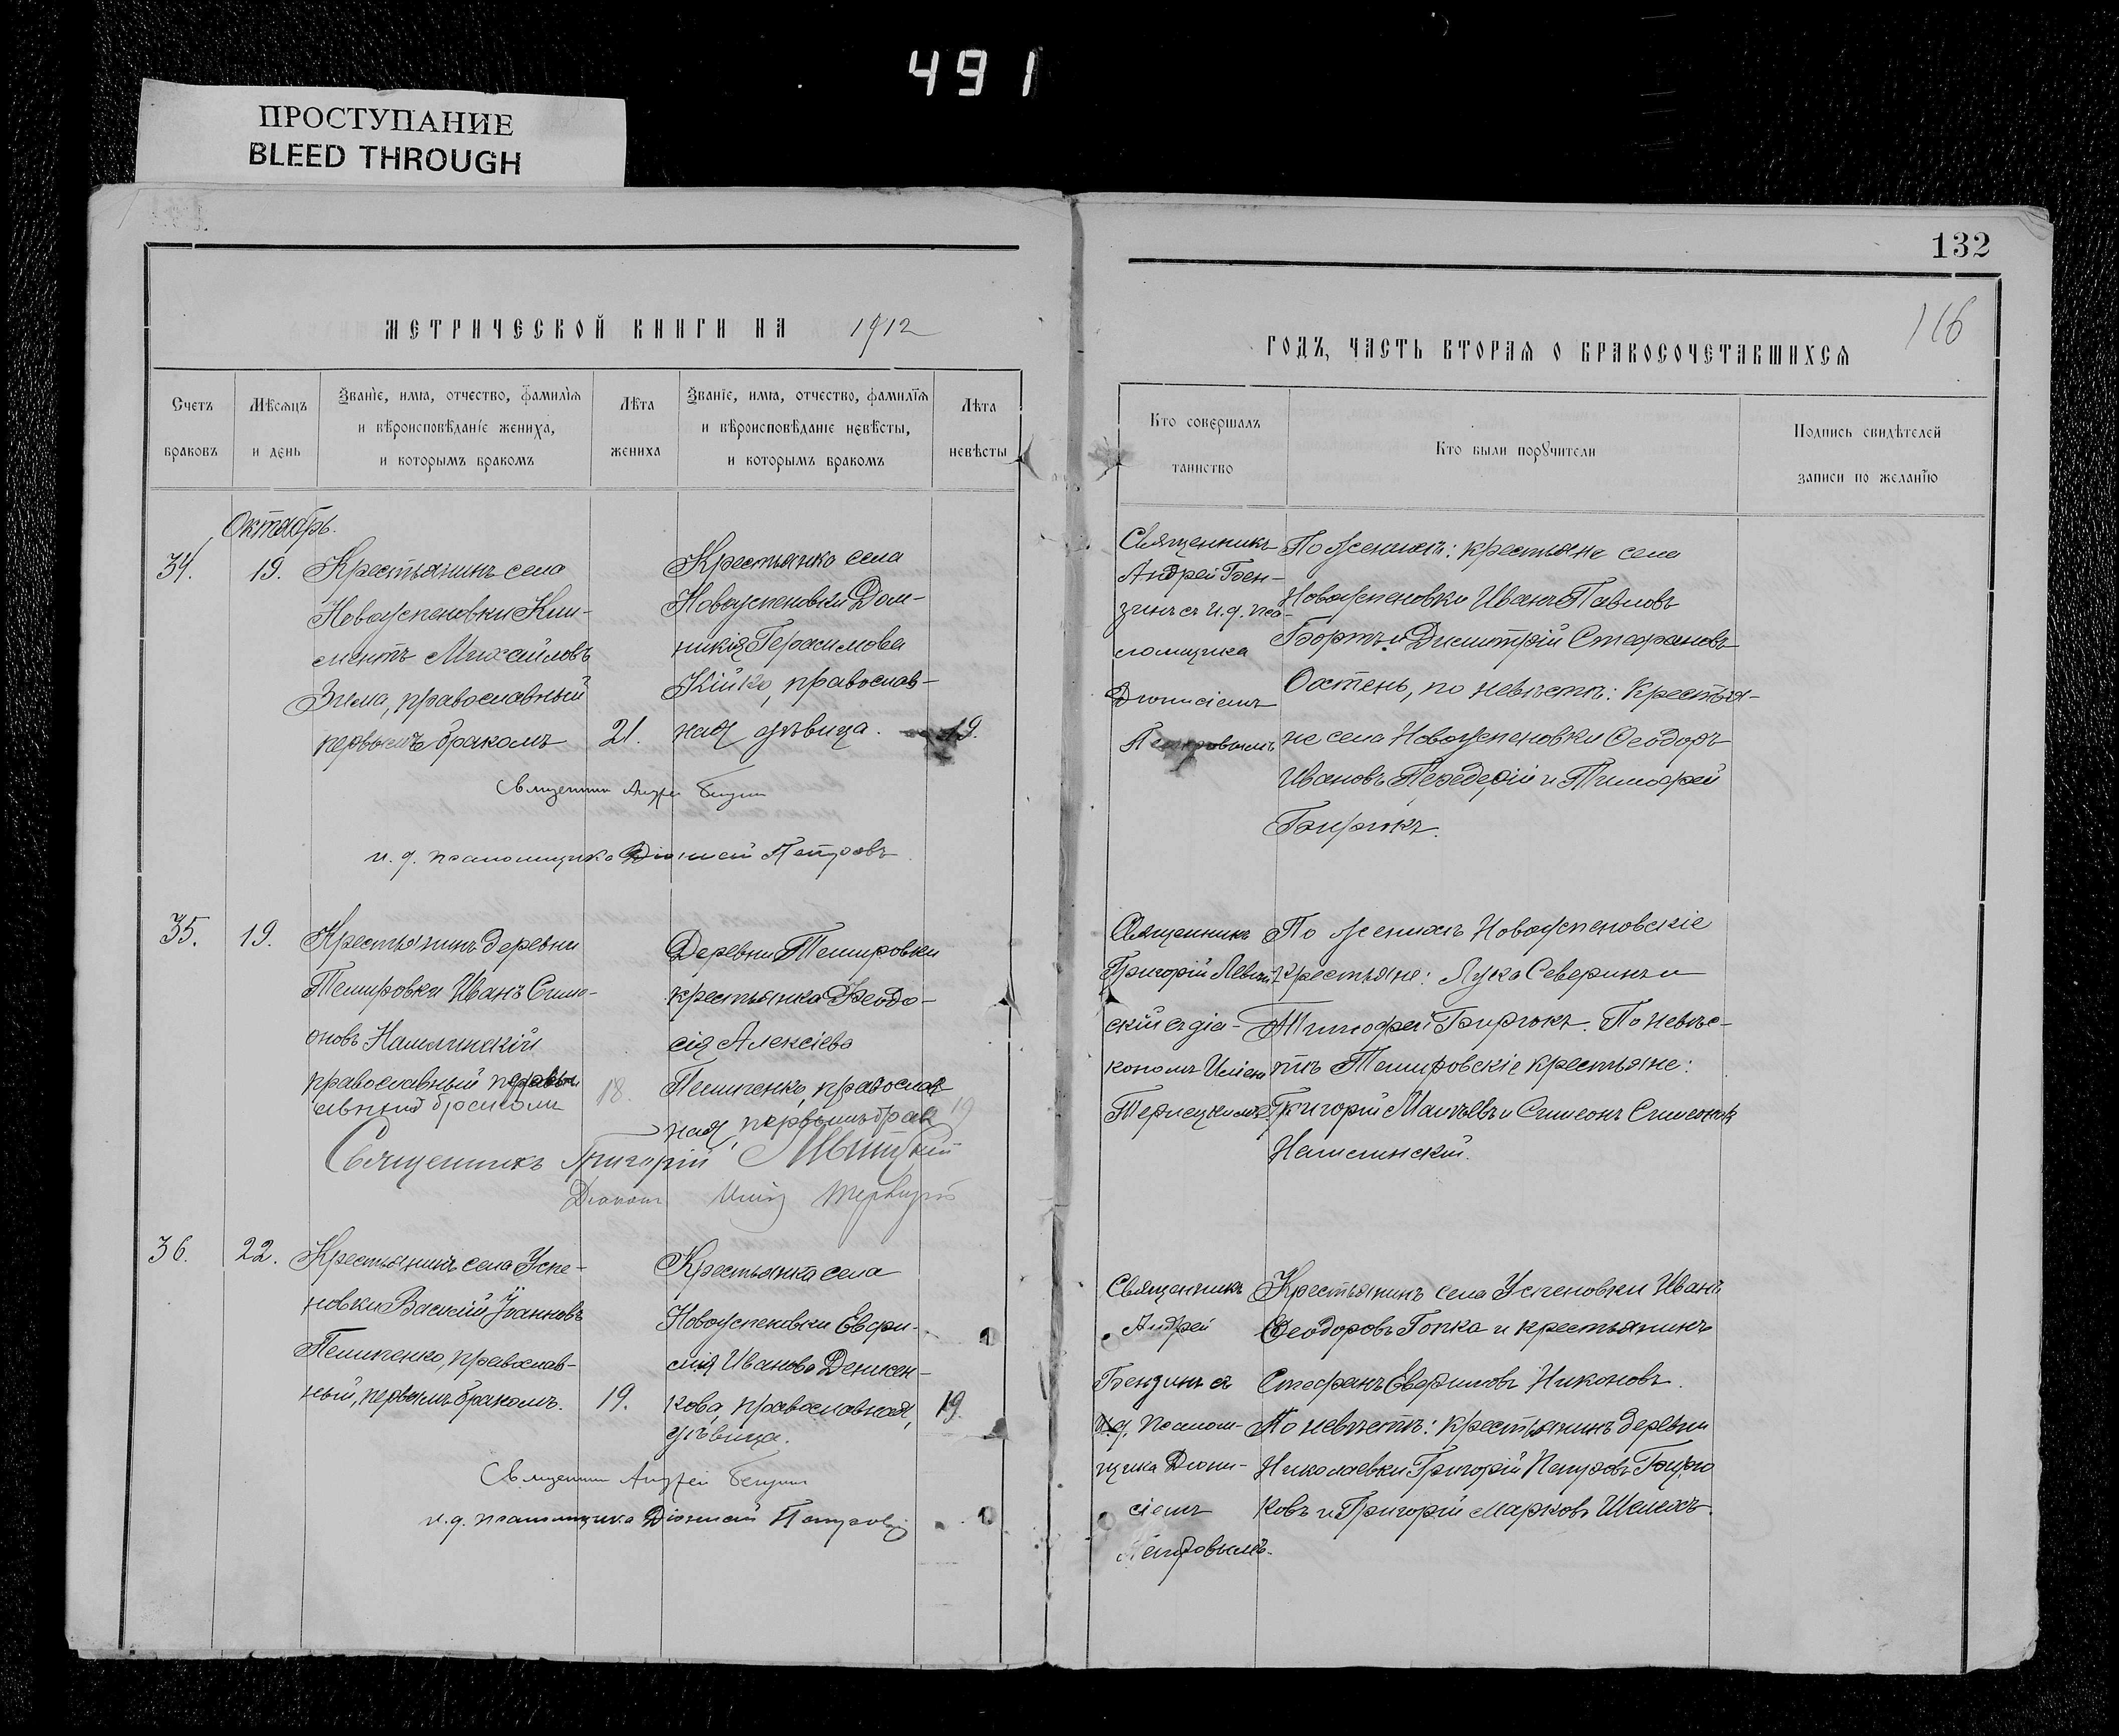 491
ПРОСТУПАНИЕ
BLEED THROUGH
132
116
МЕТРИЧЕСКОЙ КНИГИ НА 1912
ГОДЪ, ЧАСТЬ ВТОРАЯ О БРАКОСОЧЕТАВШИХСЯ
Счетъ
браковъ
Мѣсяцъ
и день
Званіе, имя, отчество, фамилія
и вѣроисповѣданіе жениха,
и которымъ бракомъ
Лѣта
жениха
Званіе, имя, отчество, фамилія
и вѣроисповѣданіе невѣсты,
и которымъ бракомъ
Лѣта
невѣсты
Кто совершалъ
таинство
Кто были порꙋчители
Подпись свидѣтелей
записи по желанію
Октябрь.
34.
19.
Крестьянинъ села
Новоуспеновки Кли-
ментъ Михайловъ
Зима, православный
первымъ бракомъ
21.
Крестьянка села
Новоуспеновки Дом-
никія Герасимова
Кійко, православ-
ная дѣвица.
19.
Священникъ
Андрей Бен-
зинъ съ и. д. пса-
ломщика
Діонисіемъ
Петровымъ
По женихѣ: крестьяне села
Новоуспеновки Иванъ Павловъ
Бортъ и Димитрій Стефановъ
Остень, по невѣстѣ: Крестья-
не села Новоуспеновки Ѳеодоръ
Ивановъ Передерій и Тимофей
Бирюкъ.
Священникъ Андрей Бензин
и. д. псаломщика Діонисій Петровъ
35.
19.
Крестьянинъ деревни
Темировки Иванъ Симе-
оновъ
православный первы
бракомъ
18.
Деревни Темировки
крестьянка Ѳеодо-
сія Алексіева
православ
ная, первымъ брак
19
Священникъ
Григорій Левит-
скій съ діа-
кономъ
По женихѣ Новоуспеновскіе
крестьяне: Лука Северинъ и
Тимофей Бирюкъ. По невѣс-
тѣ Темировскіе крестьяне:
Григорій и Симеонъ Симеоновъ
Священникъ Григорій Левитскій
Діаконъ
36.
22.
Крестьянинъ села Успе-
новки Василій Іоанновъ
православ-
ный, первымъ бракомъ.
19.
Крестьянка села
Новоуспеновки Евфи-
мія Иванова Денисен-
кова, православная,
дѣвица.
19.
Священникъ
Андрей
Бензинъ съ
и. д. псалом-
щика Діони-
сіемъ
Петровымъ.
Крестьянинъ села Успеновки Иванъ
Ѳеодоровъ Гопка и крестьянинъ
Стефанъ Евфимовъ Никоновъ.
По невѣстѣ: крестьянинъ деревни
Николаевки Григорій Петровъ Бирю
ковъ и Григорій Марковъ Шелехъ.
Священникъ Андрей Бензин
и. д. псаломщика Діонисій Петровъ